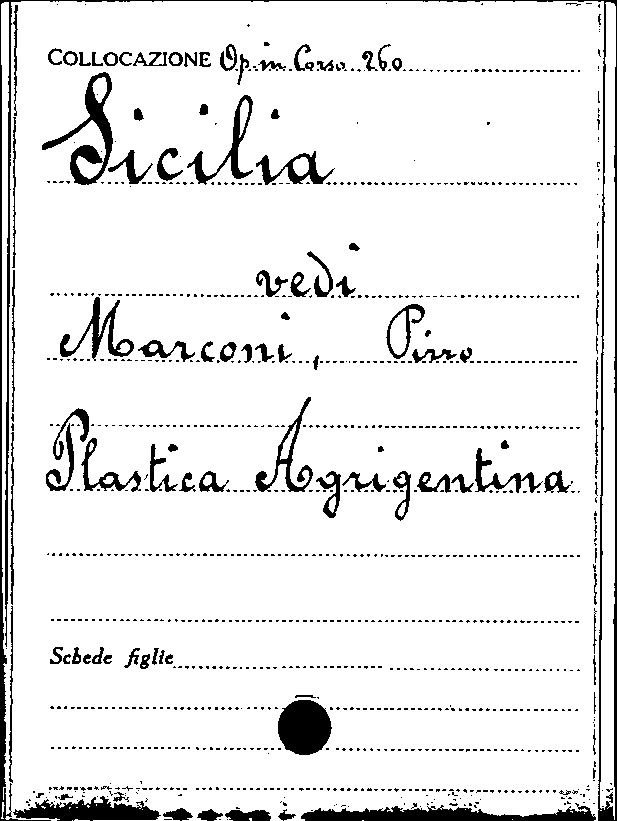 COLLOCAZIONE Op. in Corso 260
Sicilia
vedi
Marconi, Pirro
Plastica Agrigentina
Schede figlie